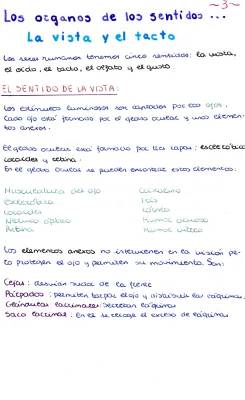 ~3~
Los órganos de los sentidos ...
La vista y el tacto
Los seres humanos tenemos cinco sentidos: la vista,
el oído, el tacto, el olfato y el gusto
EL SENTIDO DE LA VISTA:
Los estímulos luminosos son captados por los ojos.
Cada ojo está formado por el globo ocular y unos elemen-
tos anexos.
El globo ocular está formado por tres capas: esclerótica
coroides y retina.
En el globo ocular se pueden encontrar estos elementos:
Musculatura del ojo Cristalino
Esclerótica Iris
Coroides Córnea
Nervio óptico Humor acuoso
Retina Humor vítreo
Los elementos anexos no intervienen en la visión pe-
ro protegen el ojo y permiten su movimiento. Son:
Cejas: desvían sudor de la frente
Párpados: permiten tapar el ojo y distribuir las lágrimas
Glándulas lacrimales: secretan lágrimas
Saco lacrimal: En él se recoge el exceso de lágrimas